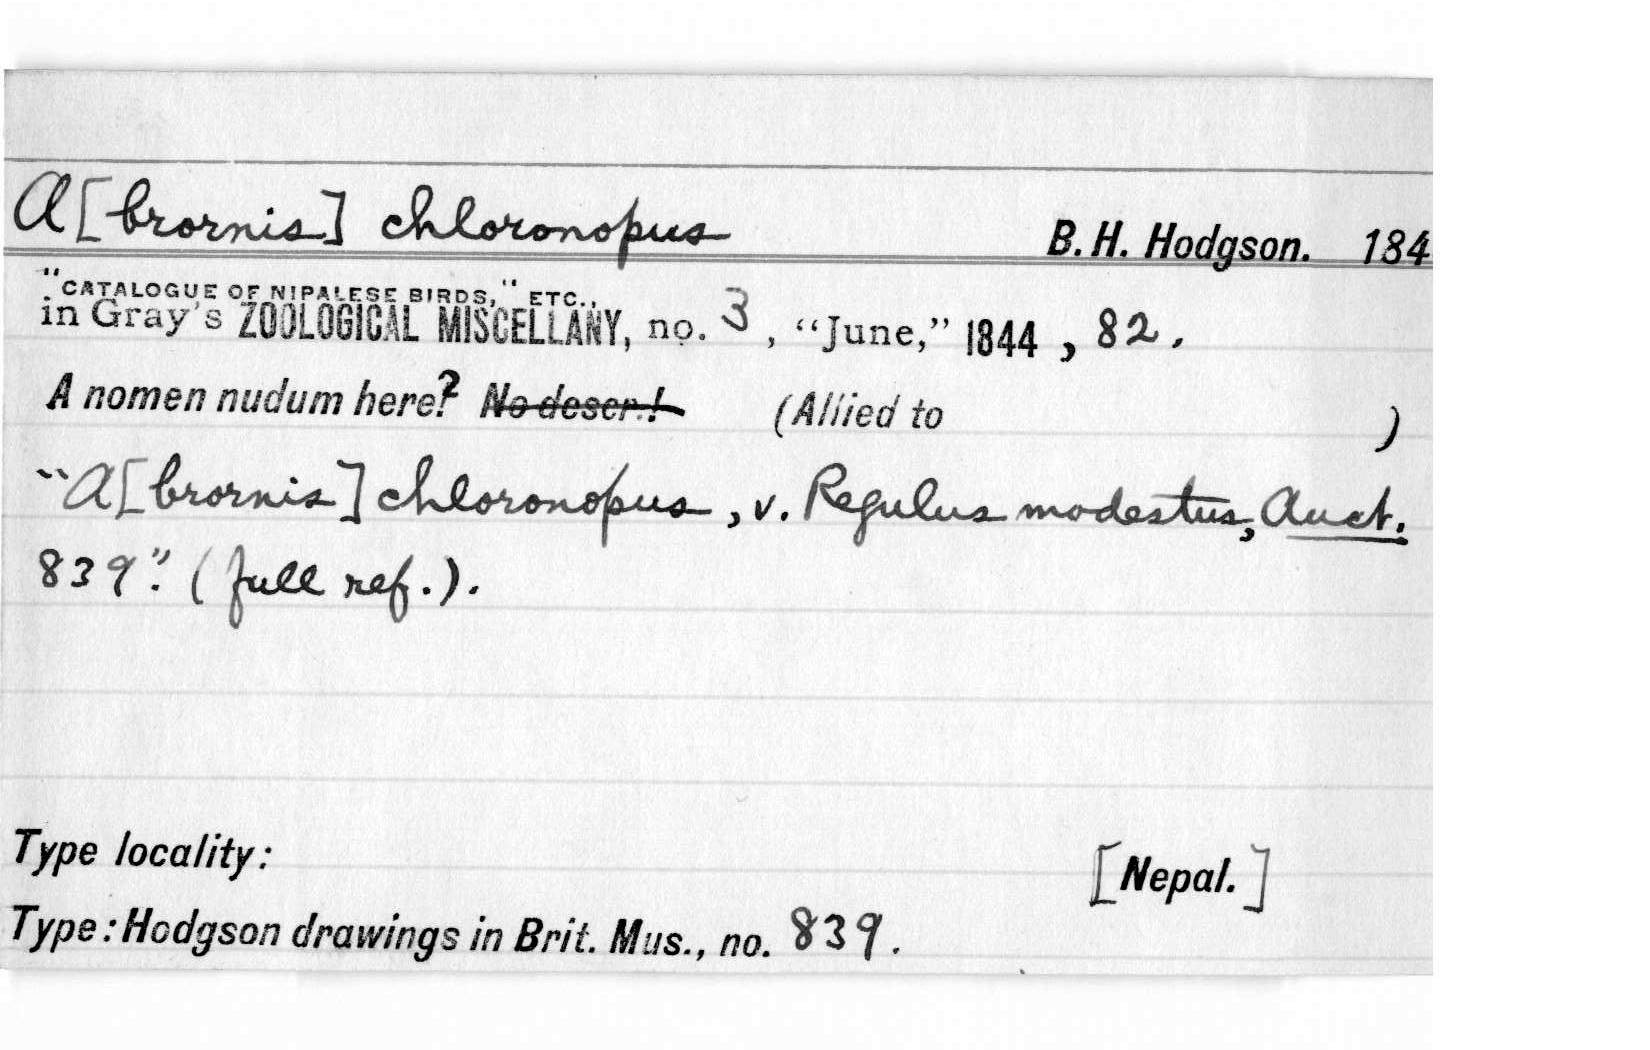 A[brornis] chloronopus B. H. Hodgson. 184
"CATALOGUE OF NIPALESE BIRDS," ETC.,
in Gray's ZOOLOGICAL MISCELLANY, no. 3, "June," 1844, 82.
A nomen nudum here? No descr.! (Allied to )
"A[brornis] chloronopus, v. Regulus modestus, Auct.
839". (full ref.).
Type locality: [Nepal.]
Type: Hodgson drawings in Brit. Mus., no. 839.